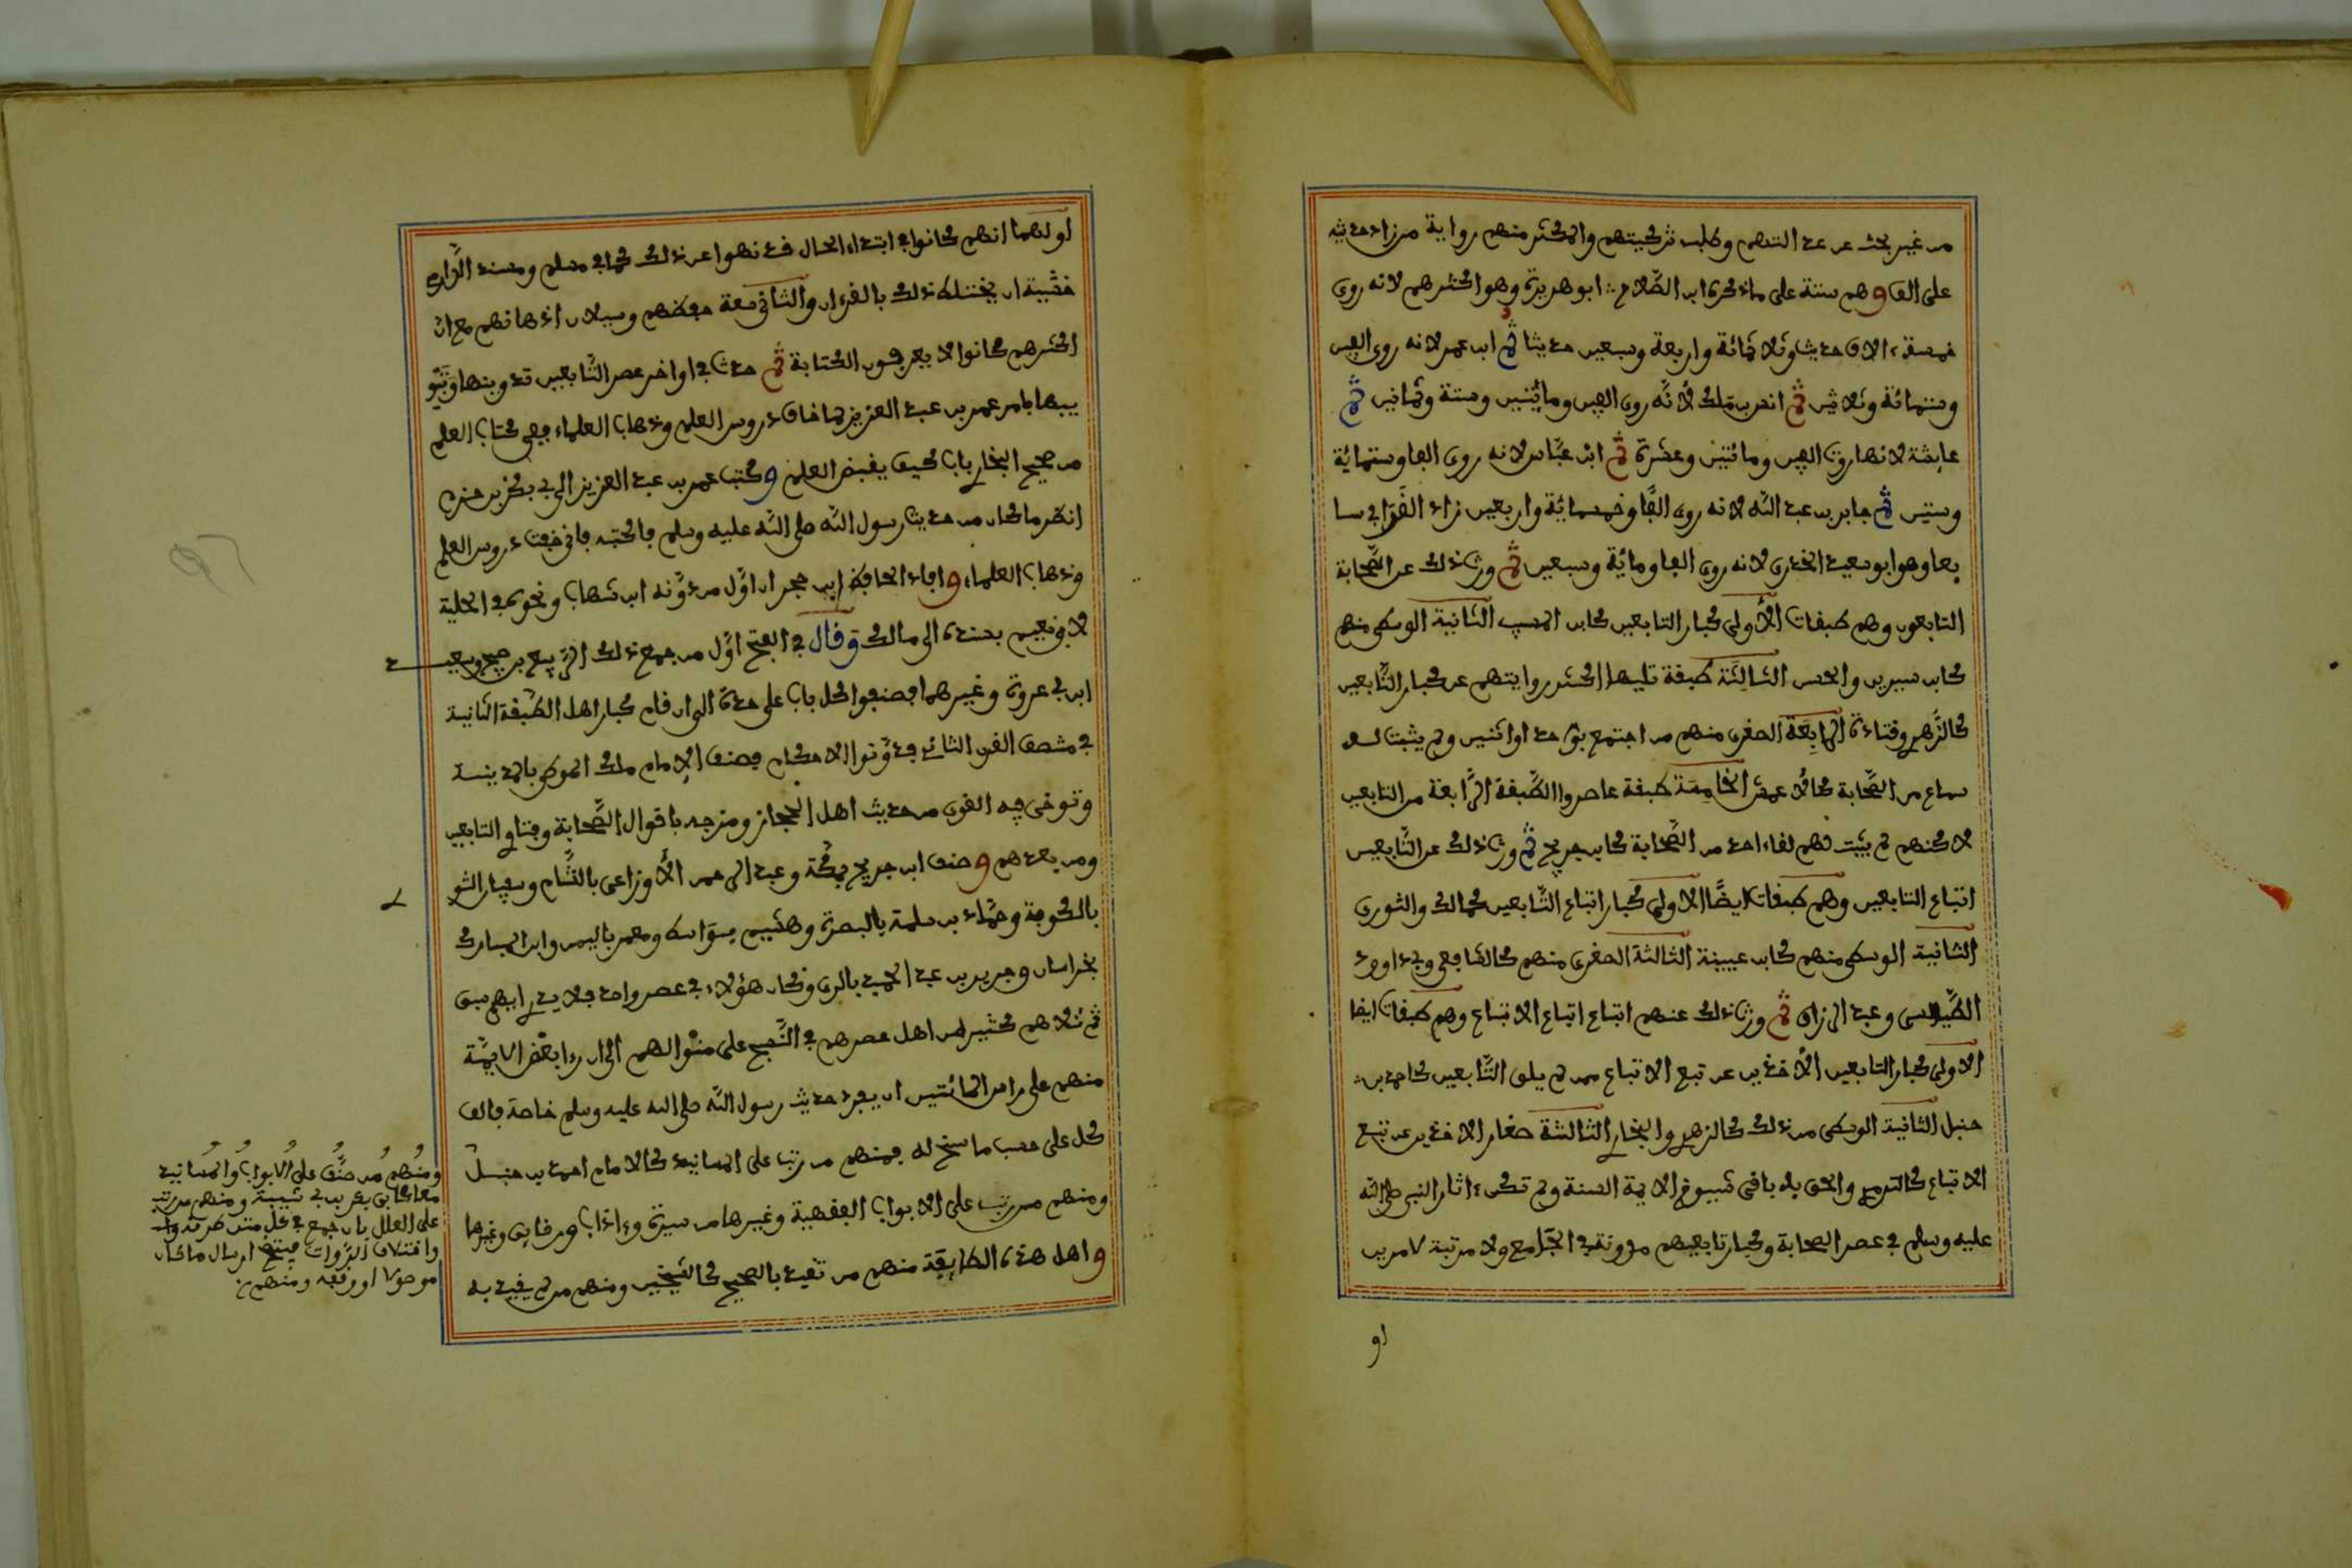 من غير بحث عن عدالتهم وطلب تزكيتهم والمكثر منهم رواية من زاد حديثه
على الف وهم ستة على ما ذكره ابن الصلاح ابو هريرة وهو اكثرهم لانه روى
خمسة ءالاف حديث وثلاثمائة واربعة وسبعين حديثا ثم ابن عمر لانه روى الفين
وستمائة وثلاثين ثم انس بن ملك لأنّه روى الفين ومائتين وستة وثمانين ثم
عايشة لانها روت الفين ومائتين وعشرة ثم ابن عبّاس لانه روى الفا وستمائة
وستين ثم جابر بن عبد الله لانه روى الفًا وخمسمائة واربعين زاد العراقي سا
بعا وهو ابو سعيد الخدري لانه روى الفا ومائة وسبعين ثم ورث ذلك عن الصّحابة
التابعون وهم طبقات الأولى كبار التابعين كابن المسيب الثانية الوسطى منهم
كابن سيرين والحسن الثالثة طبقة تليها اكثر روايتهم عن كبار التّابعين
كالزّهري وقتادة الرابعة الصغرى منهم من اجتمع بواحد او اثنين ولم يثبت له
سماع من الصّحابة كالأعمش الخامسة طبقة عاصروا الطّبقة الرّابعة من التابعين
لاكنهم لم يثبت لهم لقاء احد من الصّحابة كابن جريج ثم ورث ذلك عن التّابعين
اتباع التابعين وهم طبقات ايضًا الاولى كبار اتباع التّابعين كمالك والثوري
الثانية الوسطى منهم كابن عيينة الثالثة الصغرى منهم كالشافعي وابي داود
الطّيالسي وعبد الرزاق ثم ورث ذلك عنهم اتباع اتباع الاتباع وهم طبقات ايضا
الاولى كبار التابعين الأخذين عن تبع الاتباع ممن لم يلق التّابعين كاحمد بن
حنبل الثانية الوسطى من ذلك كالزهري والبخاري الثالثة صغار الاخذين عن تبع
الاتباع كالترمذي والحق به باقي شيوخ الايمة الستة ولم تكن ءاثار النبي صلى الله
عليه وسلم في عصر الصحابة وكبار تابعيهم مدونة في الجوامع ولا مرتبة لامرين
او
اولهما انهم كانوا في ابتداء الحال قد نهوا عن ذلك كما في مسلم ومسند الدّارمي
خشية ان يختلط ذلك بالقرءان والثاني سعة حفظهم وسيلان اذهانهم مع ان
اكثرهم كانوا لا يعرفون الكتابة ثم حدث في اواخر عصر التّابعين تدوينها وتبو
يبها بامر عمر بن عبد العزيز لما خاف دروس العلم وذهاب العلماء ففي كتاب العلم
من صحيح البخاري باب كيف يقبض العلم وكتب عمر بن عبد العزيز الى ابي بكر بن حزم
انظر ما كان من حديث رسول الله صلى الله عليه وسلم فاكتبه فاني خفت دروس العلم
وذهاب العلماء وافاد الحافظ ابن حجر ان اوّل من دوّنه ابن شهاب ونحوه في الحلية
لابي نعيم بسنده الى مالك وقال في الفتح اوّل من جمع ذلك الرّبيع بن صبيح وسعيد
ابن ابي عروبة وغيرهما فصنفوا كل باب على حدة الى ان قام كبار اهل الطبقة الثانية
في منتصف القرن الثاني فدوّنوا الاحكام فصنف الإمام ملك الموطى بالمدينة
وتوخى فيه القوي من حديث اهل الحجاز ومزجه باقوال الصّحابة وفتاوي التابعين
ومن بعدهم وصنف ابن جريج بمكّة وعبد الرحمن الأوزاعي بالشّام وسفيان الثوري
بالكوفة وحمّاد بن سلمة بالبصرة وهشيم بواسط ومعمر باليمن وابن المبارك
بخراسان وجرير بن عبد الحميد بالري وكان هؤلاء في عصر واحد فلا يدري ايهم سبق
ثم تلاهم كثير من اهل عصرهم في النّسج على منوالهم الى ان رءا بعض الايمّة
منهم على راس المائتين ان يفرد حديث رسول الله صلى الله عليه وسلم خاصة فالف
كل على حسب ما سنح له فمنهم من رتب على المسانيد كالامام احمد بن حنبل
ومنهم من رتب على الابواب الفقهية وغيرها من سيرة وءاداب ورقايق وغيرها
واهل هذه الطريقة منهم من تقيد بالصحيح كالشيخين ومنهم من لم يتقيد به
ومنهم من صنّف على الابواب والمسانيد
معا كابي بكر بن ابي شيبة ومنهم من رتب
على العلل بان جمع في كل متن طرقه
واختلاف الرّوات فيتضح ارسال ما كان
موصولا او وقفه ومنهم